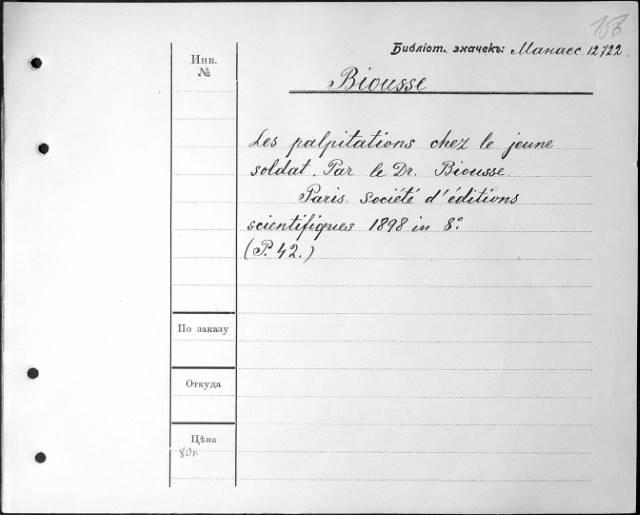 156
Библіот. значекъ: Манасс. 12722.
Инв.
№
Biousse
Les palpitations chez le jeune
soldat. Par le Dr. Biousse.
Paris. Société d'éditions
scientifiques 1898 in 8°.
(P. 42.)
По заказу
Откуда
Цѣна
80к.